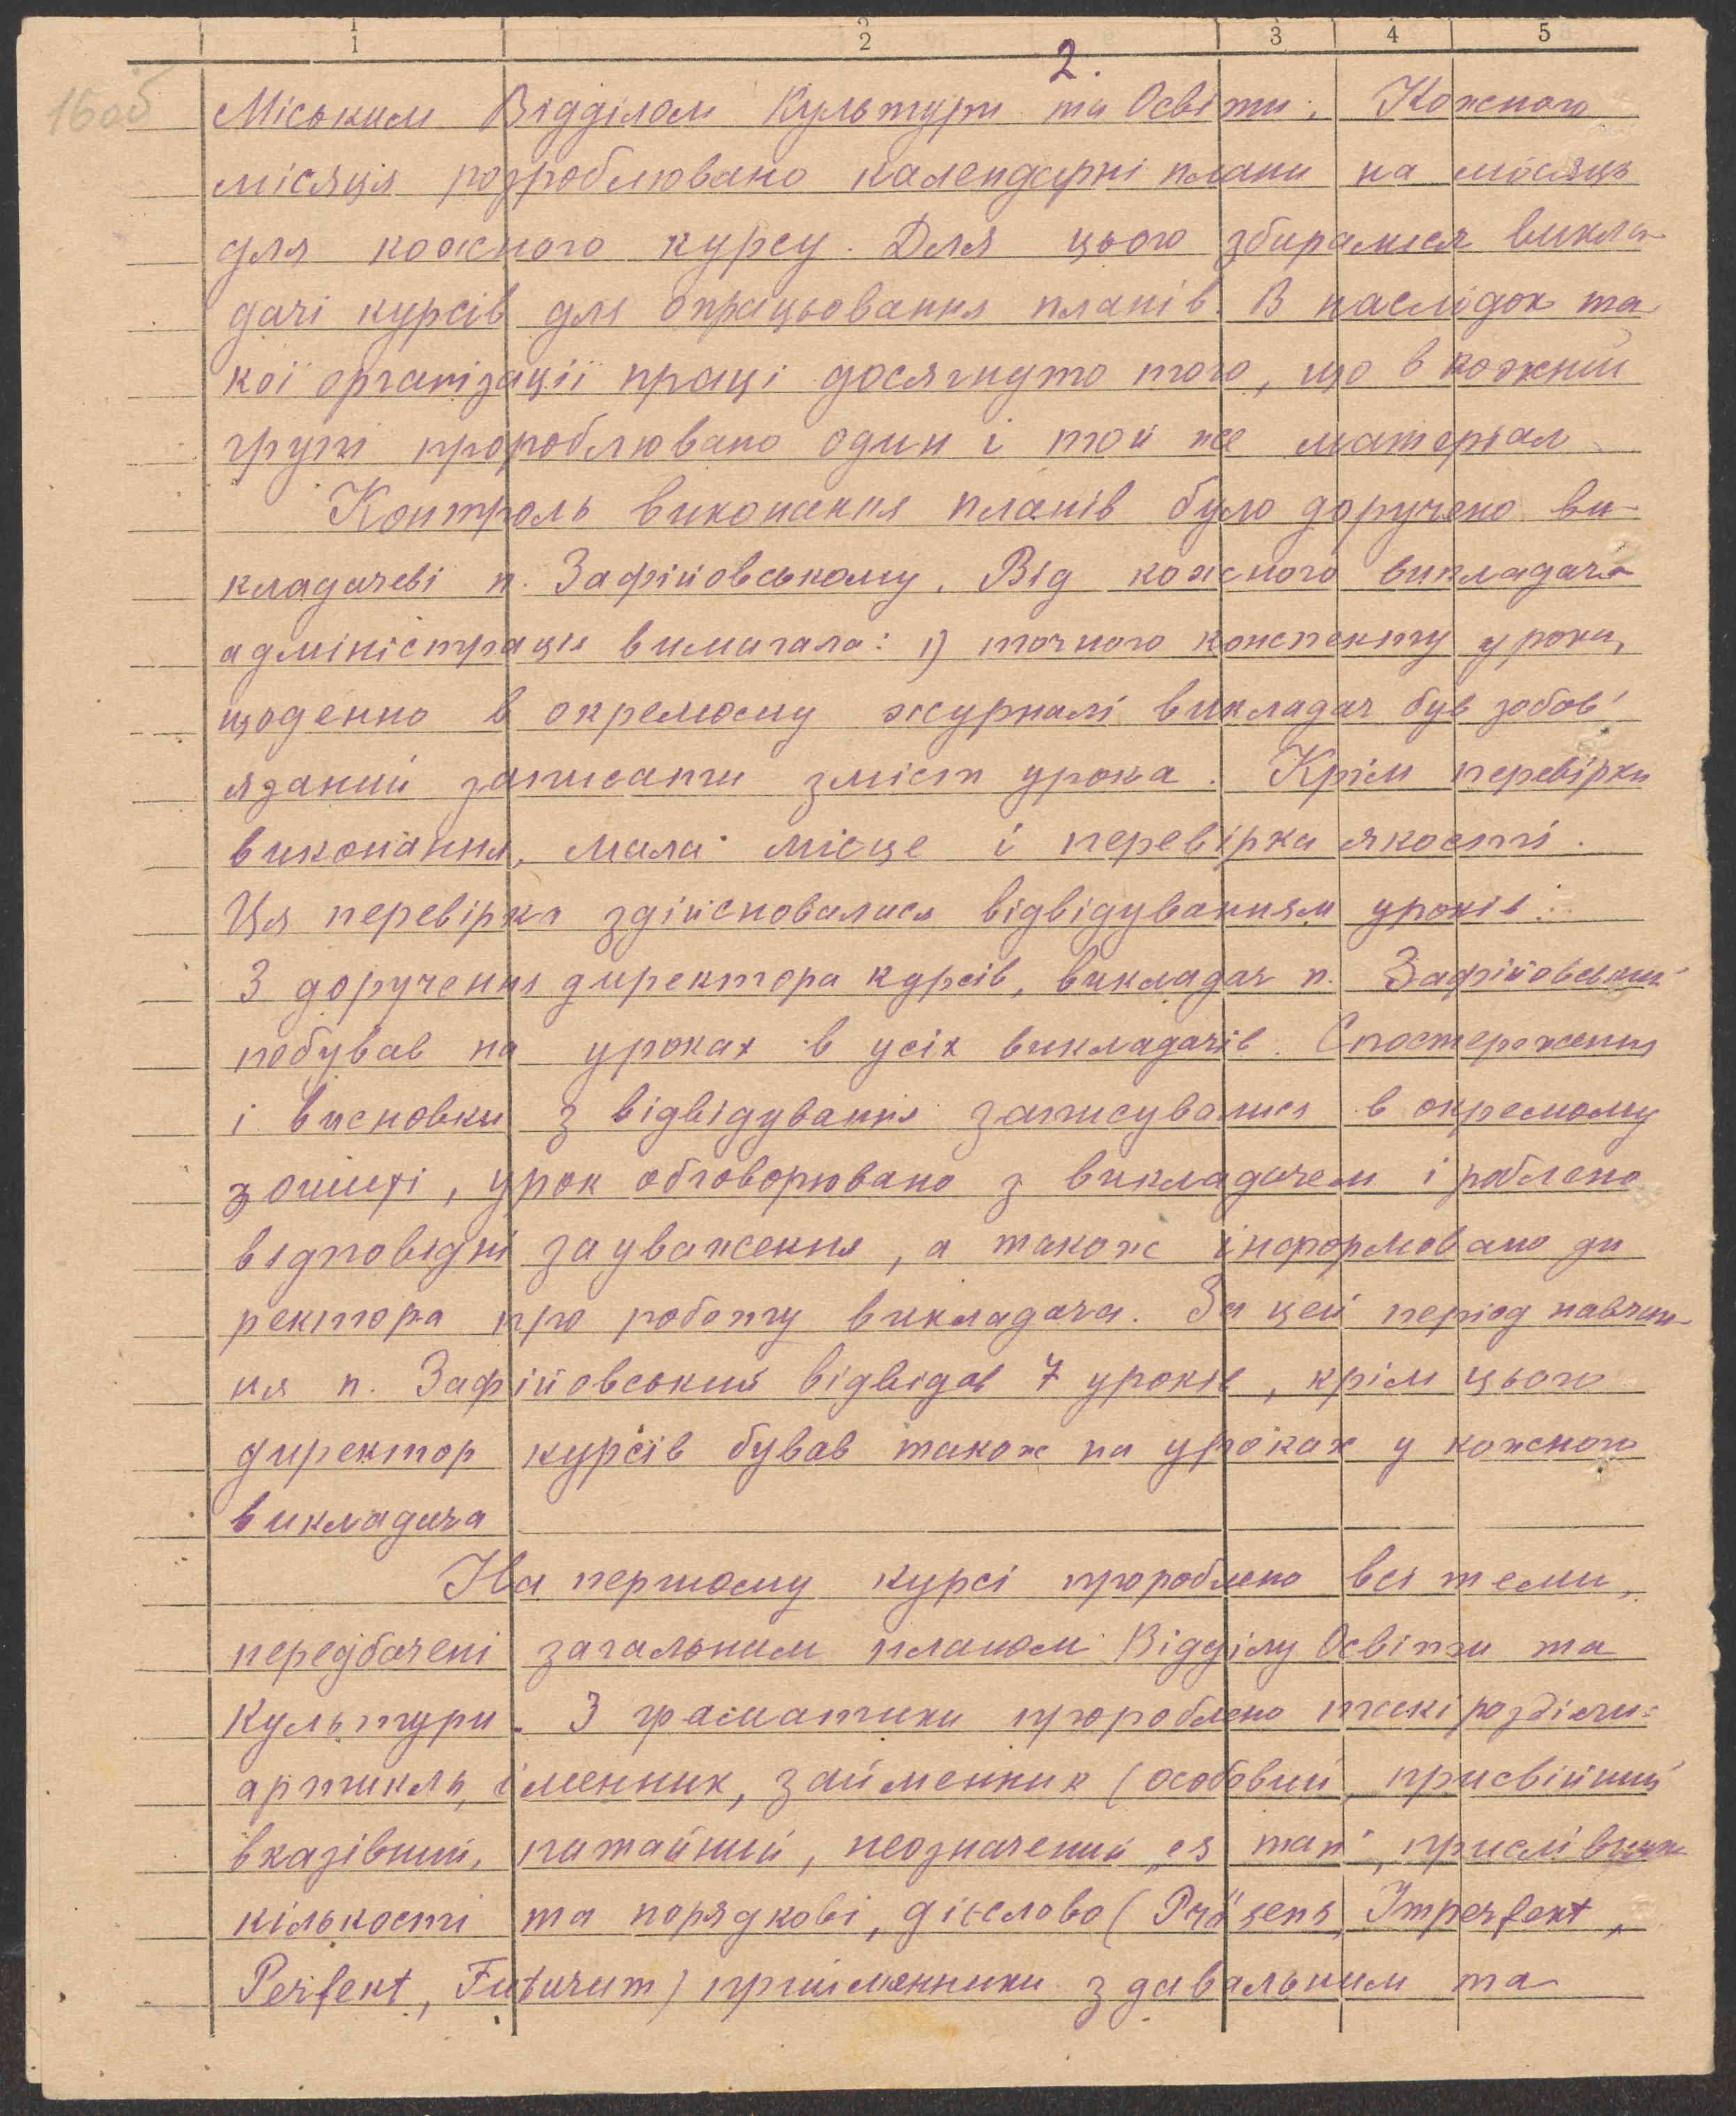 1 2 3 4 5
2.
16об
Міським Відділом Культури та Освіти. Кожного
місяця розроблювано календарні плани на місяць
для кожного курсу. Для цього збиралися викла-
дачі курсів для опрацьовання планів. В наслідок та-
кої організації праці досягнуто того, що в кожний
групі пророблювано один і той же матеріал.
Контроль виконання планів було доручено ви-
кладачеві п. Зафійовському. Від кожного викладача
адміністрація вимагала: 1) точного конспекту урока,
щоденно в окремому журналі викладач був зобов'
язаний записати зміст урока. Крім перевірки
виконання, мала місце і перевірка якости.
Ця перевірка здійсновалася відвідуванням уроків.
З доручення директора курсів, викладач п. Зафійовський
побував на уроках в усіх викладачів. Спостереження
і висновки з відвідування записувалися в окремому
зошиті, урок обговорювано з викладачем і роблено
відповідні зауваження, а також інформовано ди
ректора про роботу викладача. За цей період навчан-
ня п. Зафійовський відвідав 7 уроків, крім цього
директор курсів бував також на уроках у кожного
викладача
На першому курсі пророблено всі теми,
передбачені загальним планом Відділу Освіти та
Культури. З граматики пророблено такі розділи:
артикль, іменник, займенник (особовий, присвійний
вказівний, питайний, неозначений „es man", прислівник
кількості та порядкові, дієслово (Präsens, Imperfekt,
Perfekt, Futurum) прийменники з давальним та